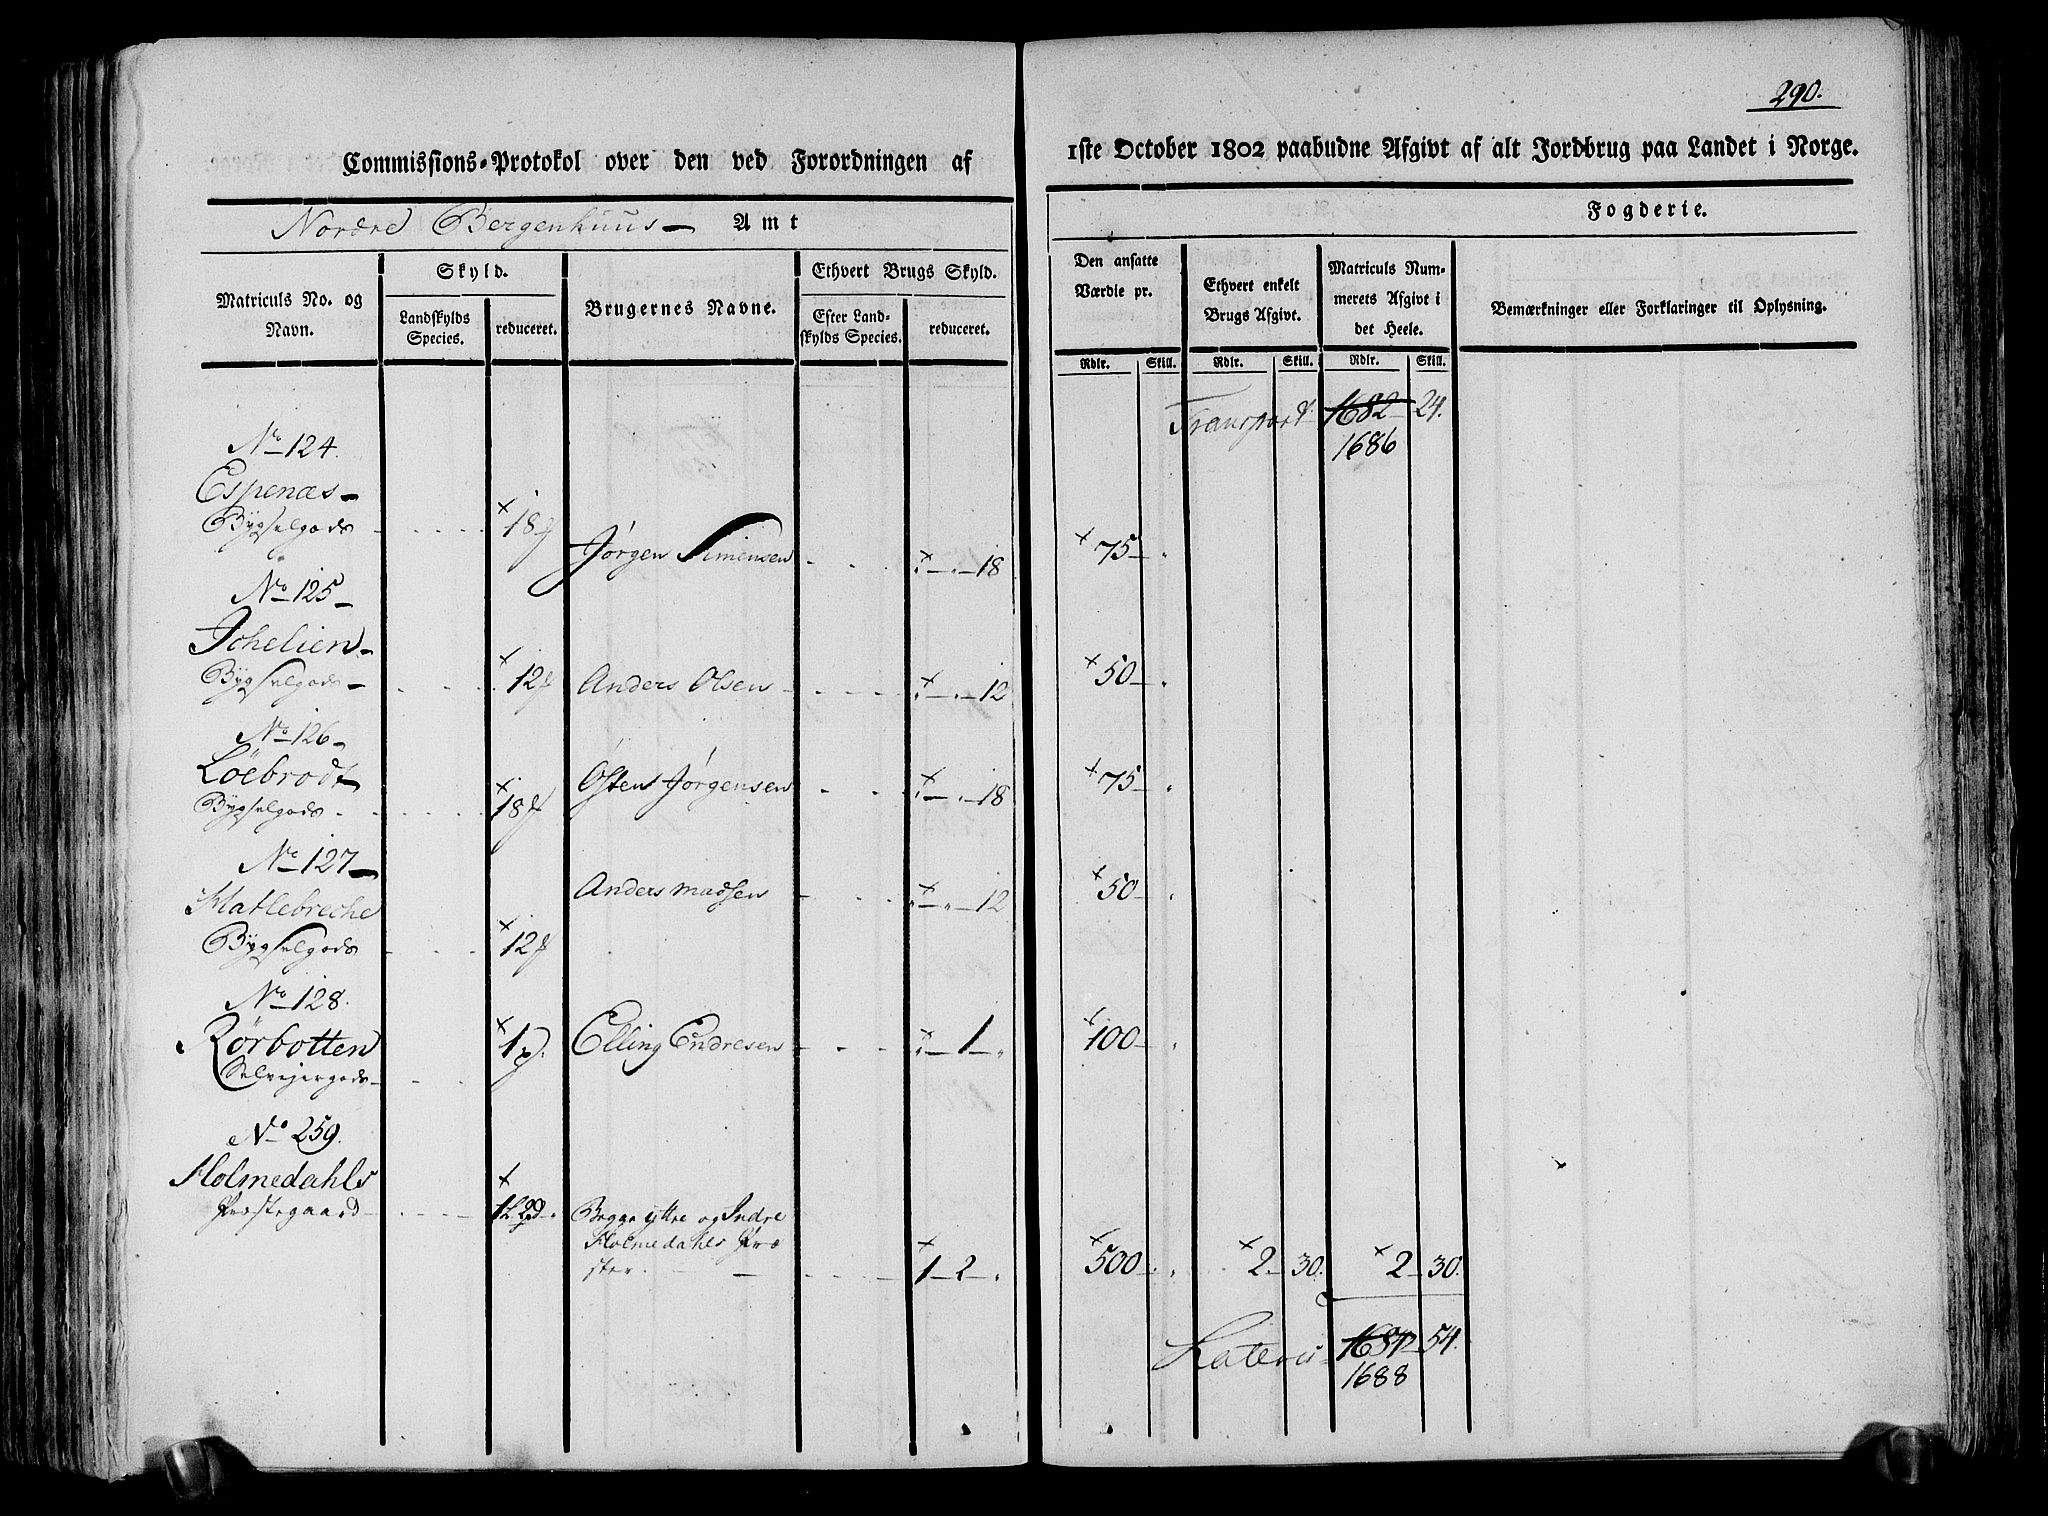 290.
Commissions-Protokol over den ved Forordningen af
1ste October 1802 paabudne Afgivt af alt Jordbrug paa Landet i Norge.
Nordre Bergenhuus Amt
Fogderie.
Matriculs No. og Navn.
Skyld.
Landskylds Species.
reduceret.
Brugernes Navne.
Ethvert Brugs Skyld.
Efter Landskylds Species.
reduceret.
Den ansatte Værdie pr.
Ethvert enkelt Brugs Afgivt.
Matriculs Nummerets Afgivt i det Heele.
Bemærkninger eller Forklaringer til Oplysning.
Rdlr. Skill. Rdlr. Skill. Rdlr. Skill.
Transport 1682 24.
1686
No 124.
Espenæs
Bÿgselgods 18 Jørgen Simensen 18 75
No 125
Ichelien
Bÿgselgods 12 Anders Olsen 12 50
No 126
Löebrodt
Bÿgselgods 18 Østen Jørgensen 18 75
No 127
Matlebreche
Bÿgselgods 12 Anders Madsen 12 50
No 128.
Rörbotten
Selvejergods 1 Elling Endresen 1 100
No 259.
Holmedahls
Præstegaard 1 2 Begge ÿttre og Indre
Holmedahls Præ
ster 1 2 500 2 30. 2 30.
Lateris 54.
1688